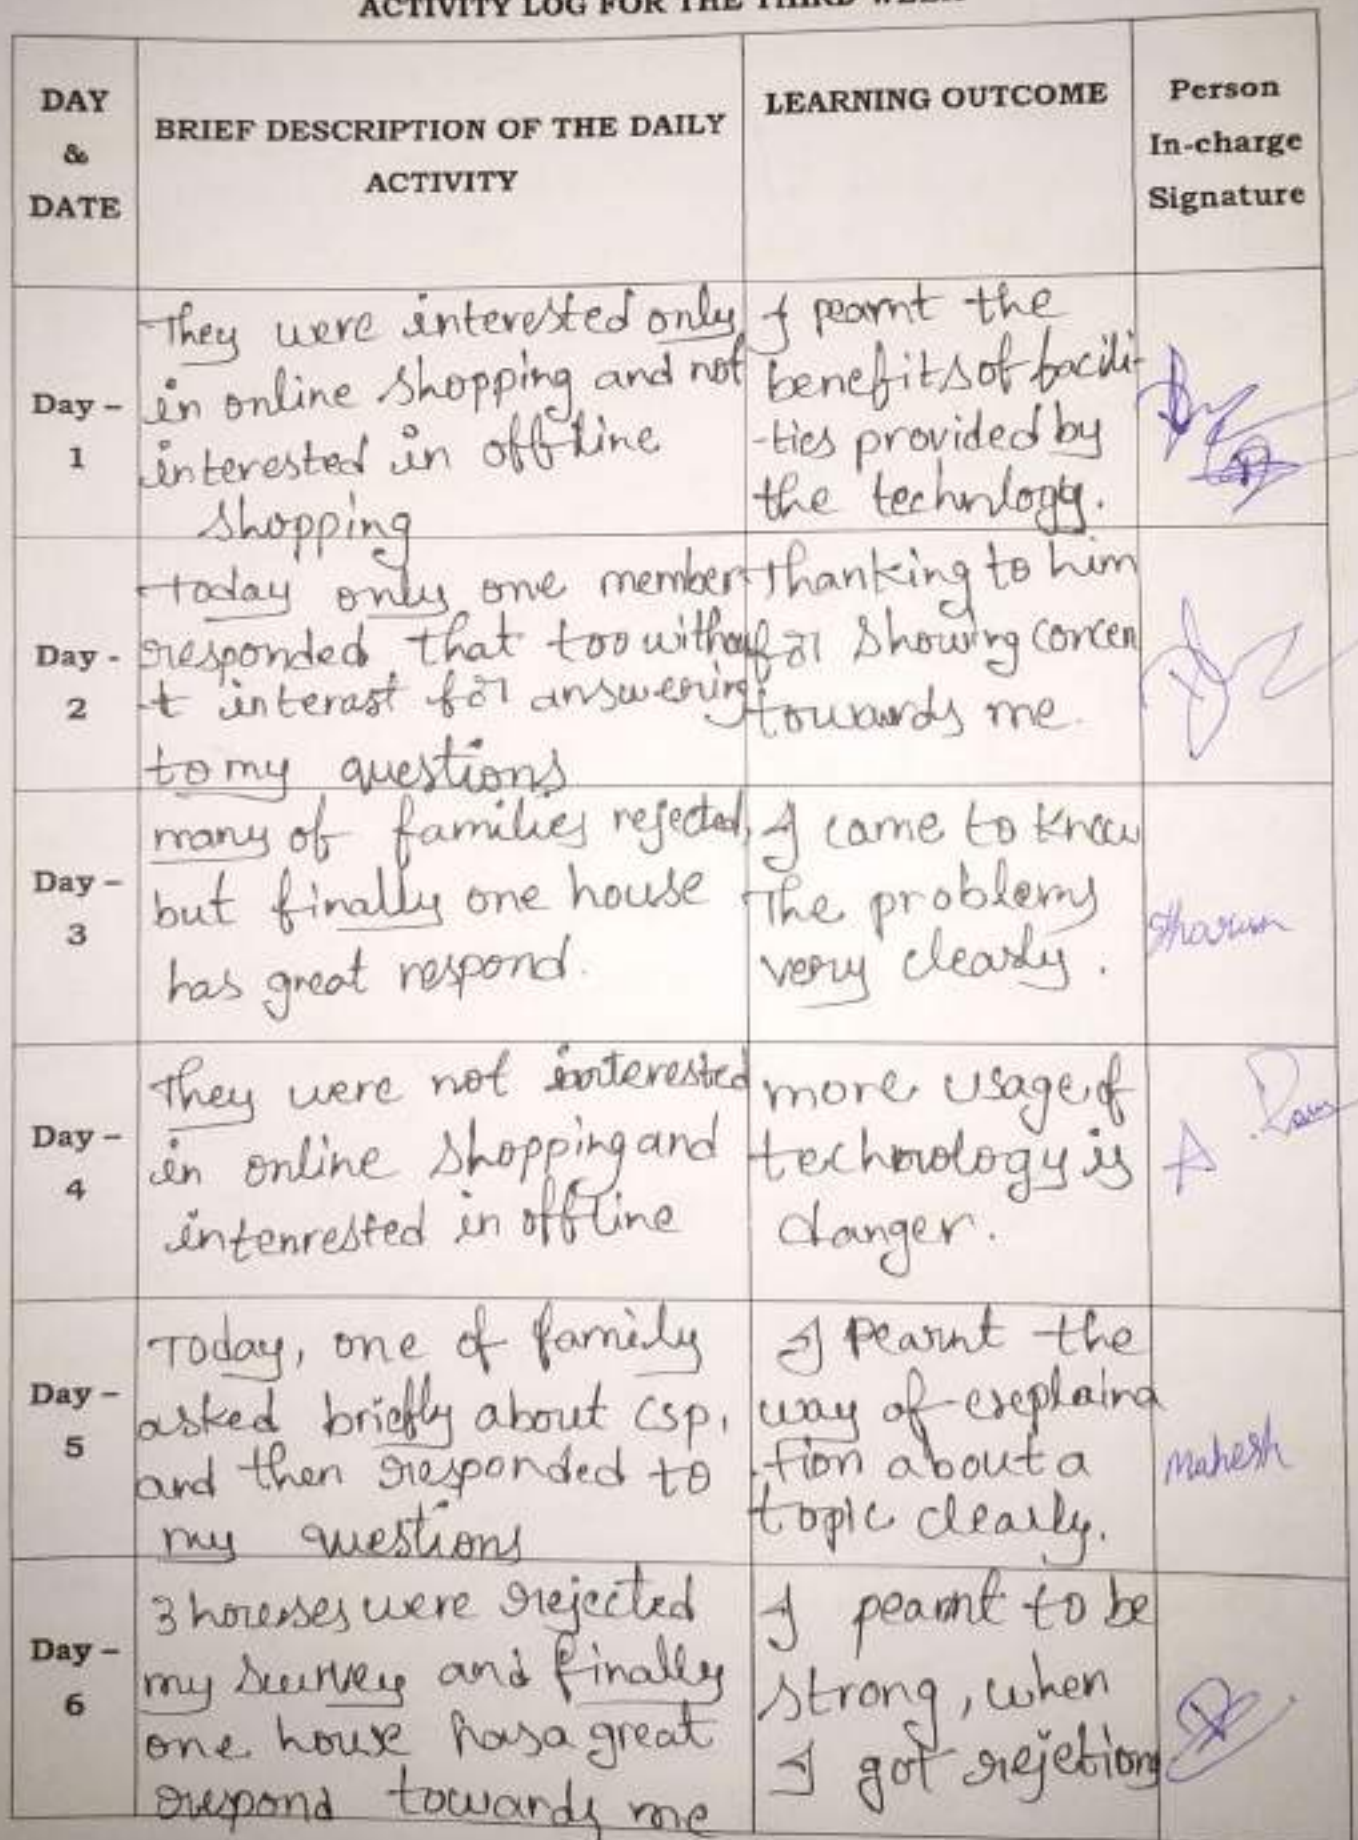 ACTIVITY LOG FOR THE THIRD WEEK
DAY
&
DATE
BRIEF DESCRIPTION OF THE DAILY
ACTIVITY
LEARNING OUTCOME
Person
In-charge
Signature
Day –
1
They were interested only
in online shopping and not
interested in offline
shopping
I pearnt the
benefits of facili-
-ties provided by
the technlogy.
Day -
2
Today only one member
responded that too withou
t interast for answering
to my questions
Thanking to him
for showing concen
towards me
Day –
3
many of families rejected,
but finally one house
has great respond.
I came to know
The problems
very clearly.
Tharun
Day –
4
They were not interested
in online shopping and
intenrested in offline
more usage of
technology is
danger.
Day –
5
Today, one of family
asked briefly about csp,
and then responded to
my questions
I pearnt the
way of explaina
-tion about a
topic clearly.
Mahesh
Day –
6
3 houses were rejected
my survey and finally
one house has a great
respond towards me
I pearnt to be
strong, when
I got rejetions